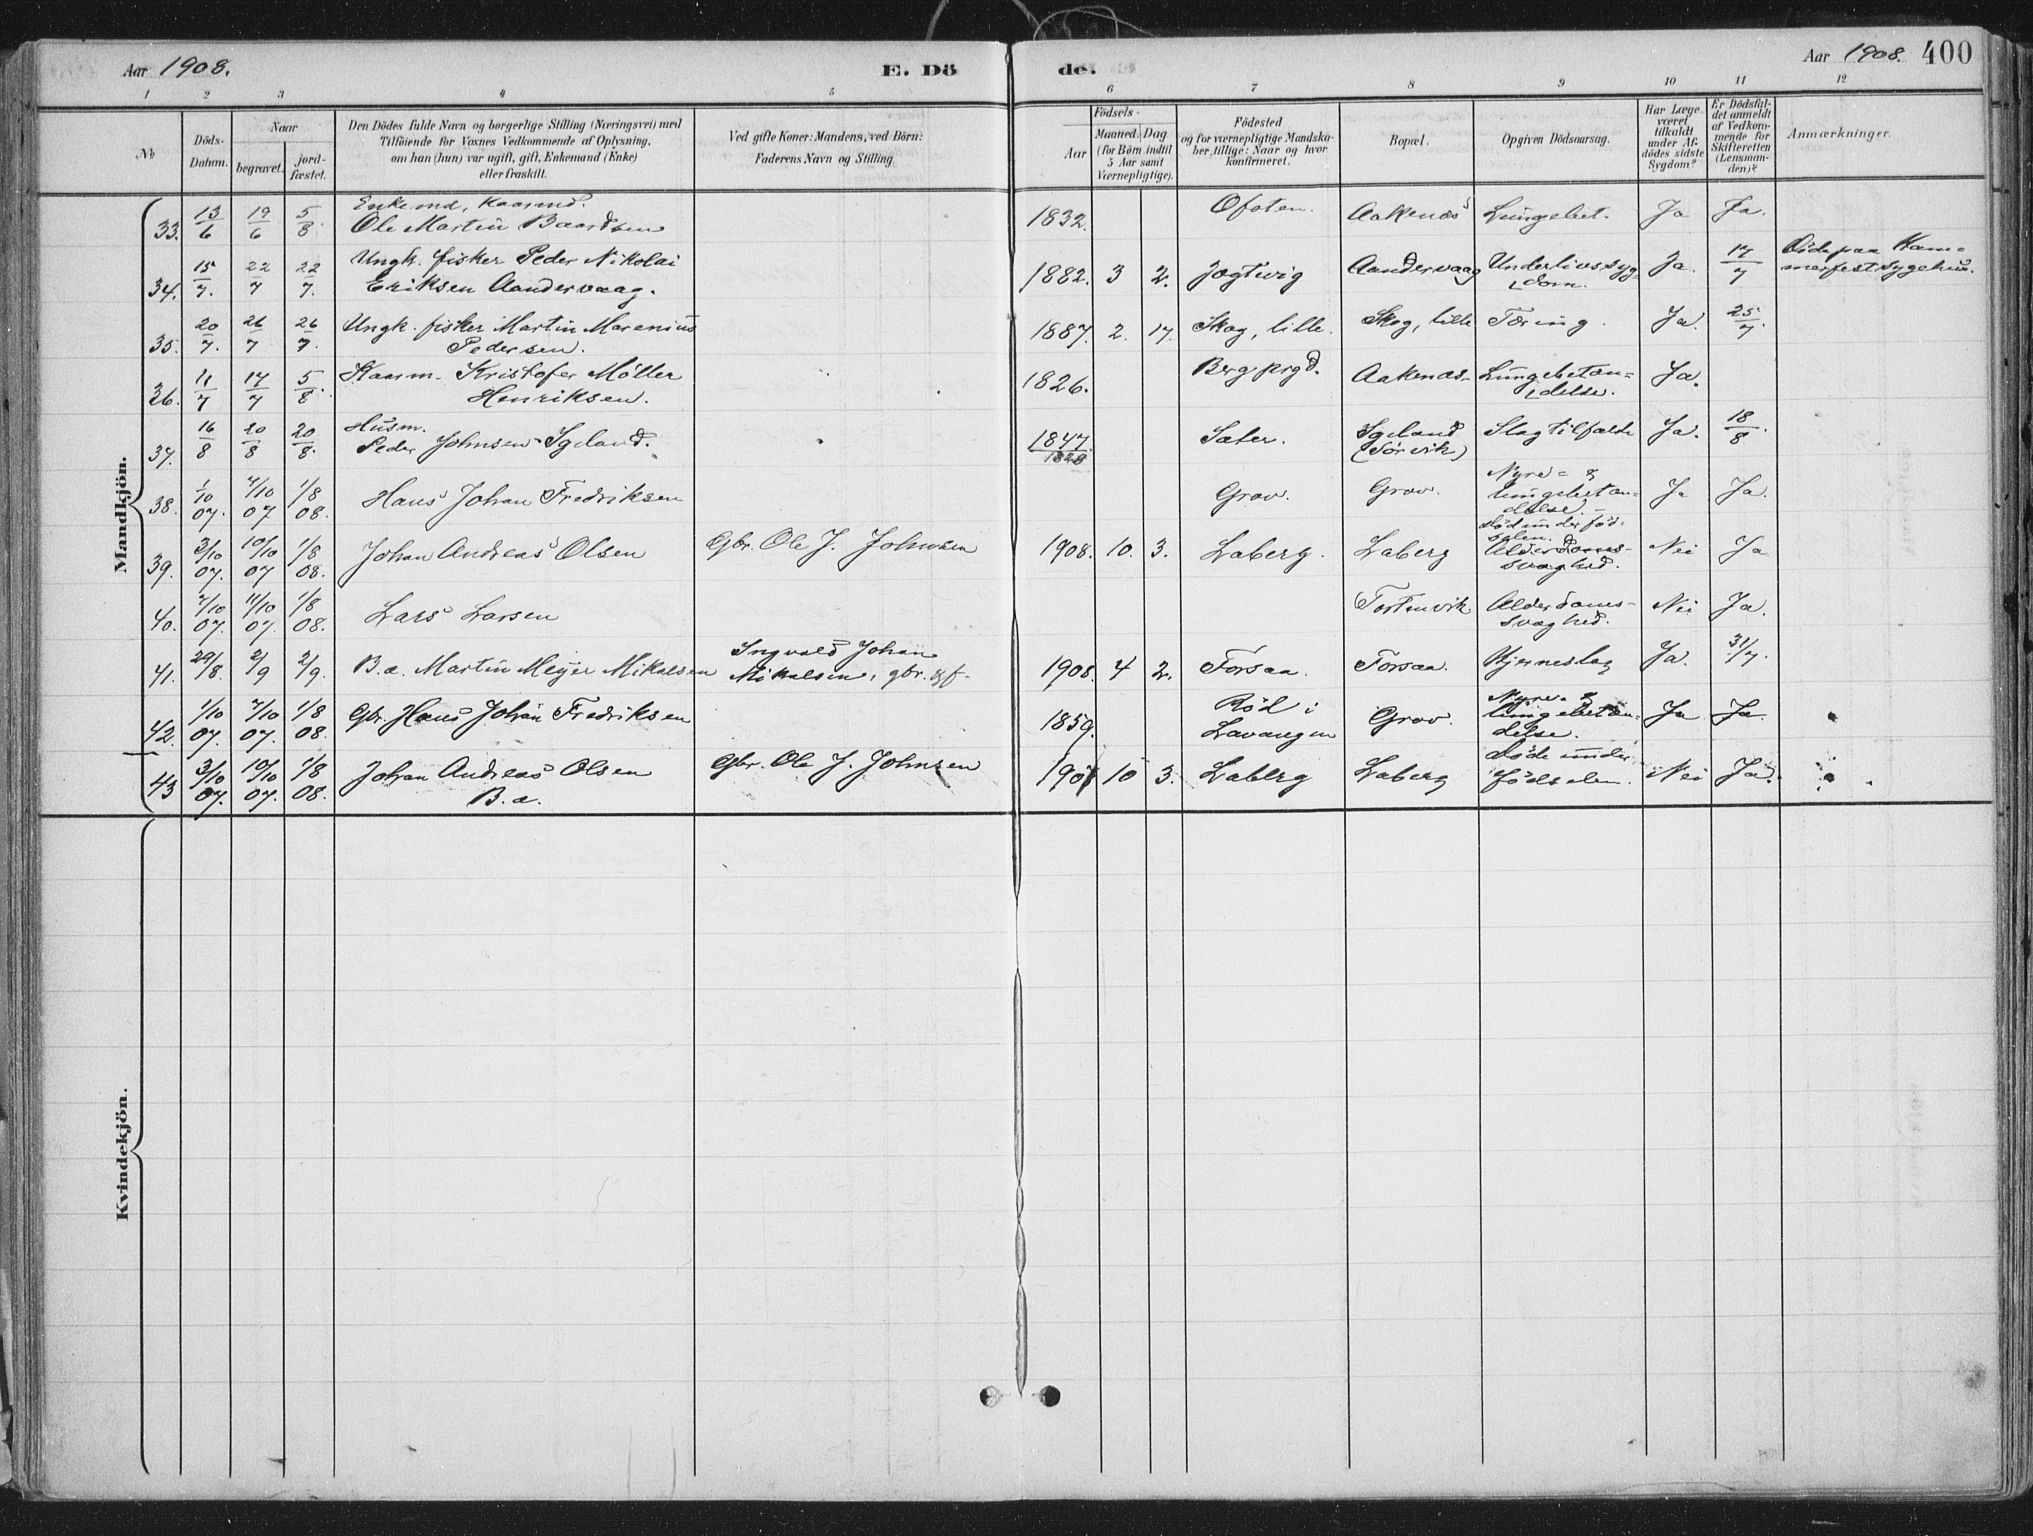 Aar 1908.
E. Dö
de.
Aar 1908. 400
1 2 3 4 5 6 7 8 9 10 11 12
No
Döds-
Datum.
Naar
begravet.
jord-
fæstet.
Den Dödes fulde Navn og borgerlige Stilling (Næringsvei) med
Tilföiende for Voxnes Vedkommende af Oplysning,
om han (hun) var ugift, gift, Enkemand (Enke)
eller fraskilt.
Ved gifte Koner: Mandens, ved Börn:
Faderens Navn og Stilling.
Födsels-
Aar
Maaned. Dag
(for Børn indtil
5 Aar samt
Værnepligtige).
Födested
og for værnepligtige Mandska-
ber, tillige: Naar og hvor
konfirmeret.
Bopæl.
Opgiven Dödsaarsag.
Har Læge
været
tilkaldt
under Af-
dödes sidste
Sygdom?
Er Dödsfal-
det anmeldt
af Vedkom-
mende for
Skifteretten
(Lensman-
den)?
Anmærkninger.
Mandkjön.
33. 13/6 19/6 5/8 Enkemd, Kaarmd.
Ole Martin Baardsen 1832. Ofoten. Aakenæs Lungebet. Ja Ja.
34. 15/7. 22/7 22/7. Ungk. fisker Peder Nikolai
Eriksen Aandervaag. 1882. 3 2. Jøgtvig Aandervaag Underlivssyg-
dom. Ja. 17/7 Døde paa Ham-
merfest sygehus.
35. 20/7. 26/7 26/7. Ungk. fisker Martin Marenius
Pedersen. 1887. 2. 17. Skog, lille. Skog, lille Tæring. Ja. 25/7.
36. 11/7 17/7 5/8. Kaarm. Kristofer Møller
Henriksen. 1826. Berg prgd. Aakenæs Lungebetæn-
delse. Ja.
37. 16/8 20/8 20/8. Husm.
Peder Johnsen Igeland. 1847
1828 Sater. Igeland
(Sørvik) Slagtilfælde Ja. 18/8.
38. 1/10 07. 7/10 07 1/8 08. Hans Johan Fredriksen Grov. Grov. Nyre- &
lungebetæn-
delse. Ja Ja.
39. 3/10 07. 10/10 07 1/8 08. Johan Andreas Olsen Gbr. Ole J. Johnsen 1908. 10. 3. Laberg. Laberg død under fød-
selen.
Alderdoms-
svaghed. Nei Ja.
40. 7/10 07. 11/10 07. 1/8 08. Lars Larsen Tortenvik Alderdoms-
svaghed. Nei Ja.
41. 29/8. 2/9 2/9. B.a. Martin Meyer Mikalsen Ingvald Johan
Mikalsen, gbr. & f. 1908. 4 2. Forsaa. Forsaa. Hjerneslag Ja. 31/7.
42. 1/10 07. 7/10 07. 1/8 08. Gbr. Hans Johan Fredriksen 1859. Rød i
Lavangen Grov. Nyre- &
lungebetæn-
delse. Ja Ja
43 3/10 07. 10/10 07. 1/8 08. Johan Andreas Olsen
B.a. Gbr. Ole J. Johnsen 1907 10 3. Laberg Laberg døde under
fødselen. Nei Ja.
Kvindekjön.